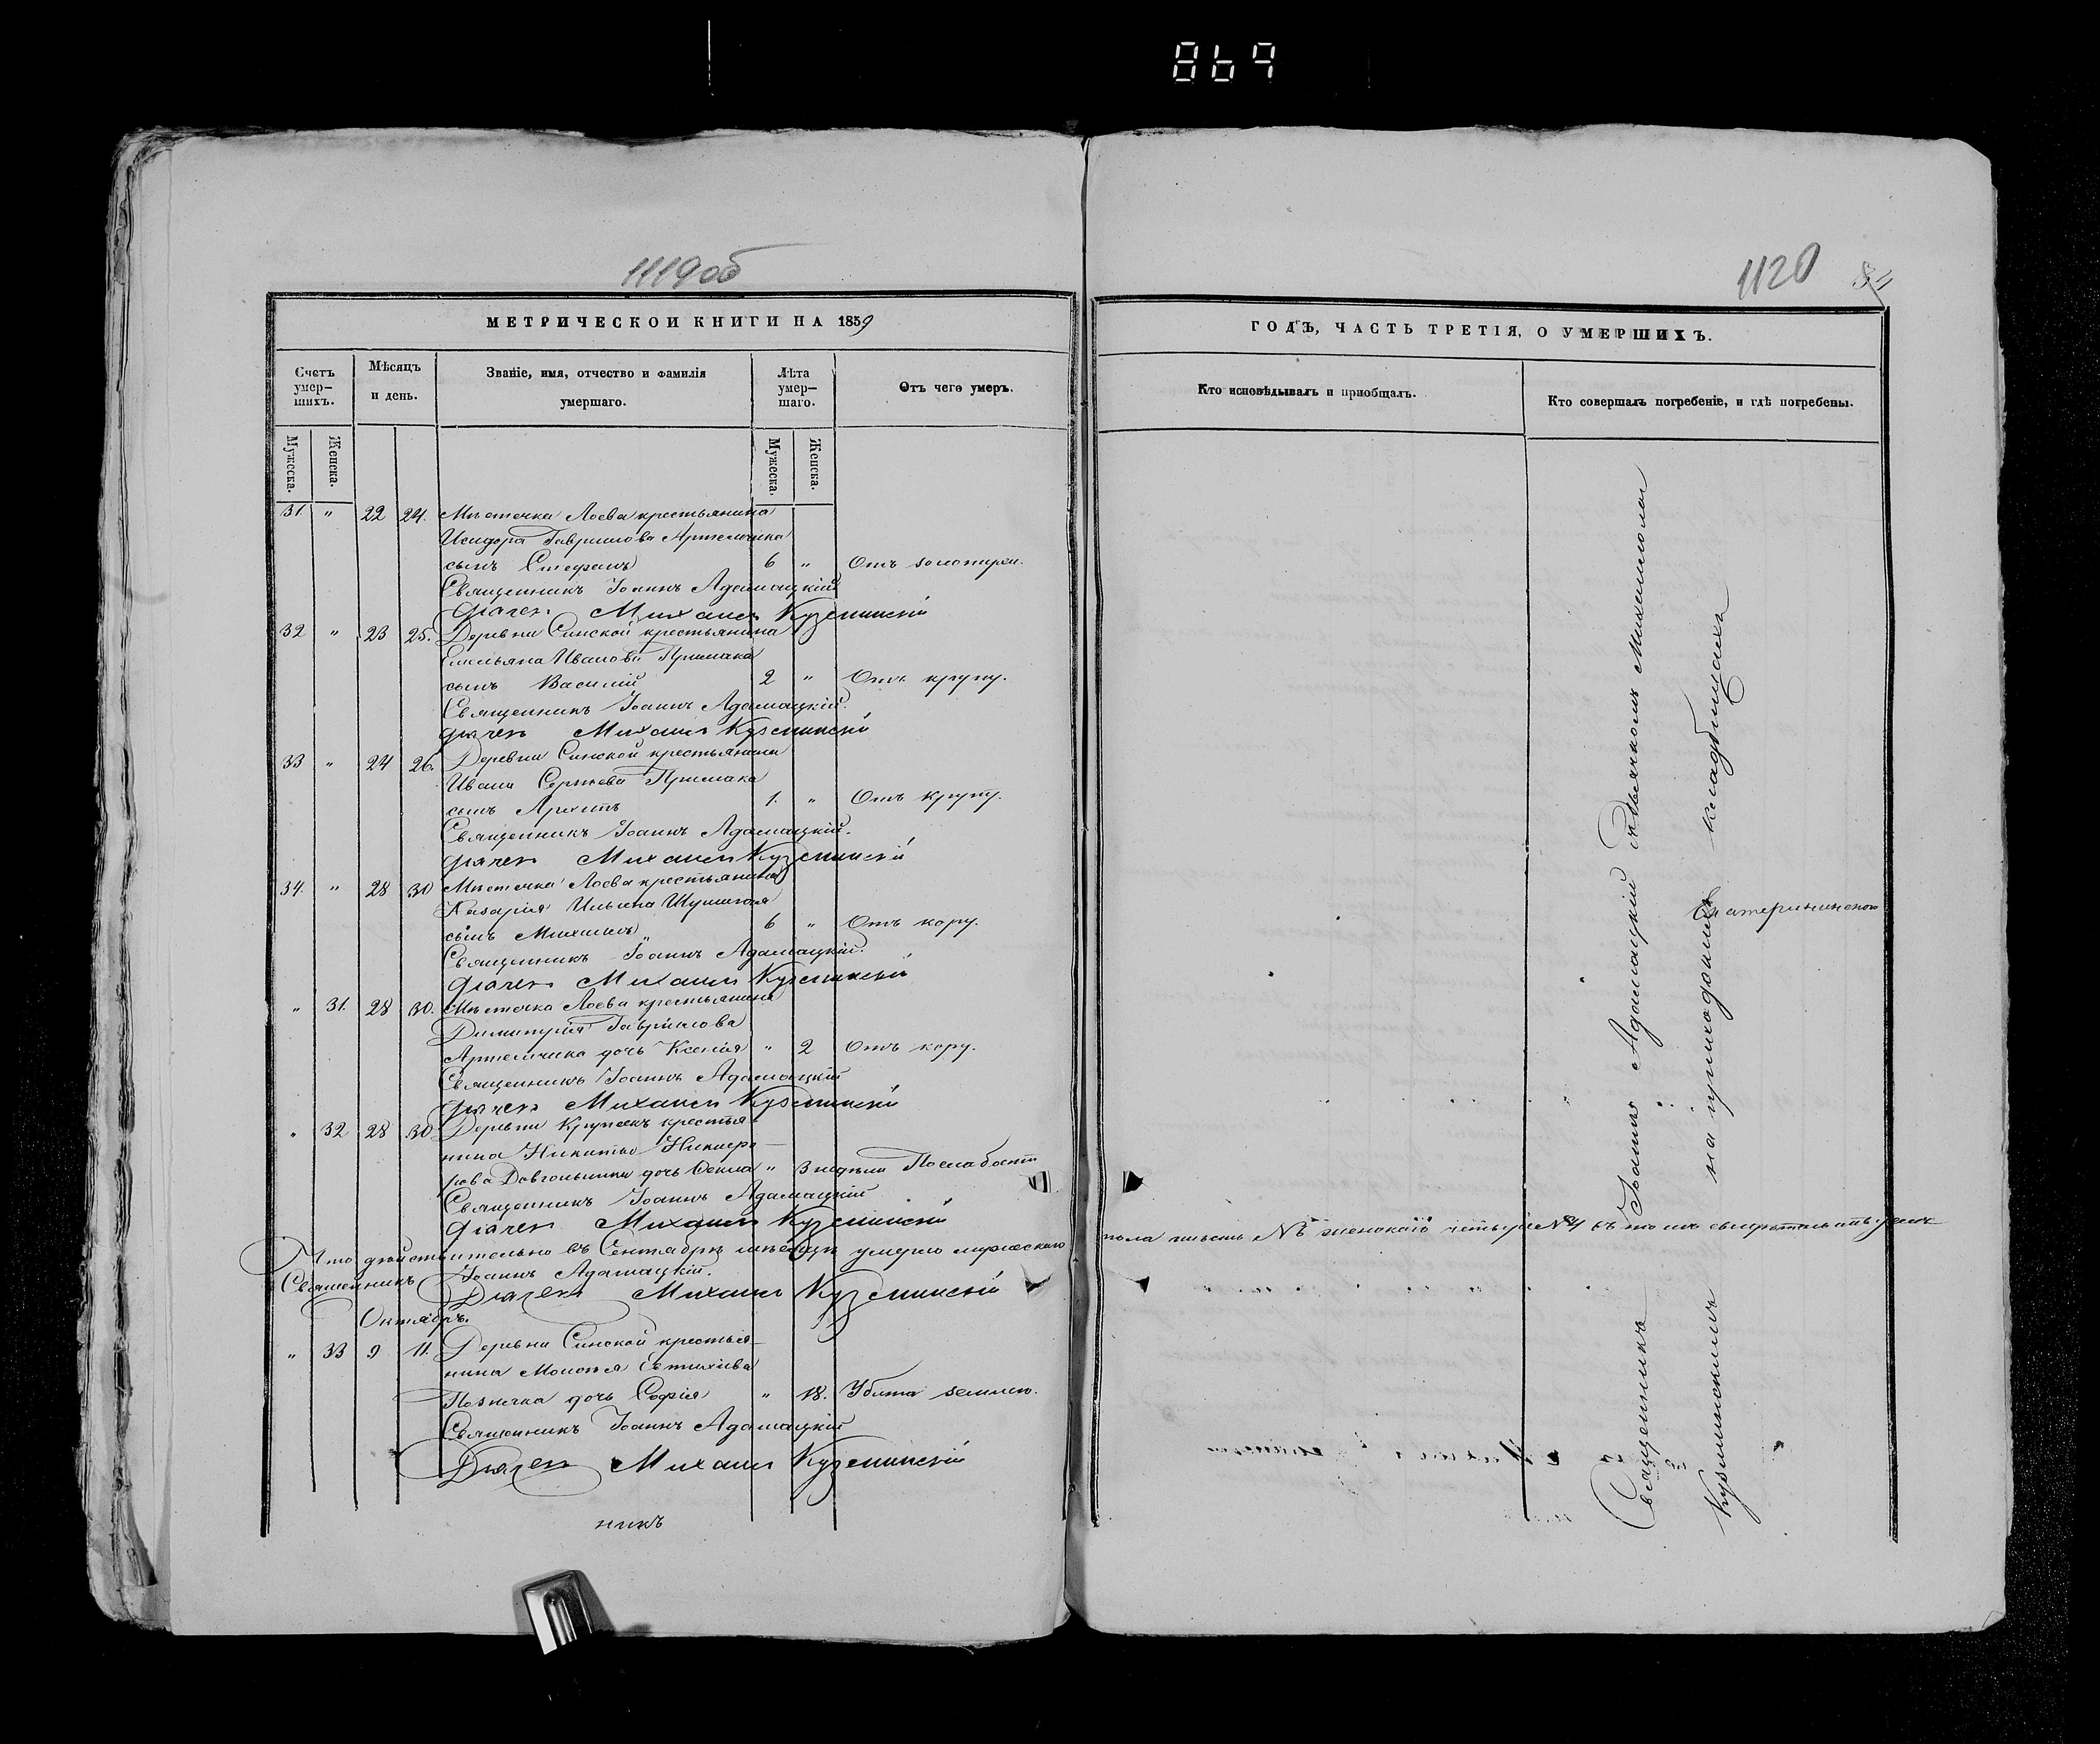 869
1119об
МЕТРИЧЕСКОЙ КНИГИ НА 1859
Счетъ умер-шихъ.
Мѣсяцъ и день.
Званіе, имя, отчество и фамилія умершаго.
Лѣта умер-шаго.
Отъ чего умеръ.
Мужеска.
Женска.
Мужеска.
Женска.
31 " 22 24. Мѣстечка Лоева крестьянина
Исидора Гаврилова Артемчика
сынъ Стефанъ 6 " Отъ золотухи.
Священникъ Іоаннъ Адамацкій
Діячекъ Михаилъ Кузминскій
32 " 23 25. Деревни Синской крестьянина
Емельяна Иванова Примака
сынъ Василій 2 " Отъ крупу.
Священникъ Іоаннъ Адамацкій.
Діячекъ Михаилъ Кузминскій
33 " 24 26. Деревни Синской крестьянина
Ивана Сергѣева Примака
сынъ Архипъ 1. " Отъ крупу.
Священникъ Іоаннъ Адамацкій.
Діячекъ Михаилъ Кузминскій
34. " 28 30 Мѣстечка Лоева крестьянина
Назарія Ильина
сынъ Михаилъ 6 " Отъ кору.
Священникъ Іоаннъ Адамацкій.
Діячекъ Михаилъ Кузминскій
" 31. 28 30. Мѣстечка Лоева крестьянина
Димитрія Гаврилова
Артемчика дочь Ксенія " 2 Отъ кору.
Священникъ Іоаннъ Адамацкій
Діячекъ Михаилъ Кузминскій
" 32 28 30 Деревни крестья-
нина Никиты Никифо-
рова дочь Ѳекла " 3 недѣли
Священникъ Іоаннъ Адамацкій
Діячекъ Михаилъ Кузминскій
Что дѣйствительно въ Сентябрѣ мѣсяцѣ умерло мужескаго
Священникъ Іоаннъ Адамацкій.
Діячекъ Михаилъ Кузминскій
Октябрь.
" 33 9 11. Деревни Синской крестья-
нина
дочь Софія " 18. Убита землею.
Священникъ Іоаннъ Адамацкій
Діячекъ Михаилъ Кузминскій
никъ
1120
84
ГОДЪ, ЧАСТЬ ТРЕТІЯ, О УМЕРШИХЪ.
Кто исповѣдывалъ и пріобщалъ.
Кто совершалъ погребеніе, и гдѣ погребены.
Священникъ Іоаннъ Адамацкій съ дьячкомъ Михаиломъ
Кузминскимъ на приходскихъ кладбищахъ
пола шесть № женскаго четыре №4 въ томъ